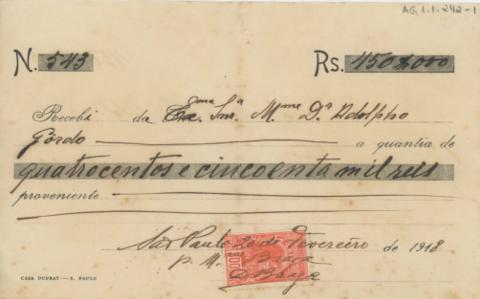 AG.1.1.242-1
N. 543 Rs. 450$000
Recebi da Exma. Snra. Mme. Dr. Adolpho
Gordo a quantia de
quatrocentos e cincoenta mil reis
proveniente
São Paulo 20 de Fevereiro de 1918
p. M. Braga
CASA DUPRAT — S. PAULO